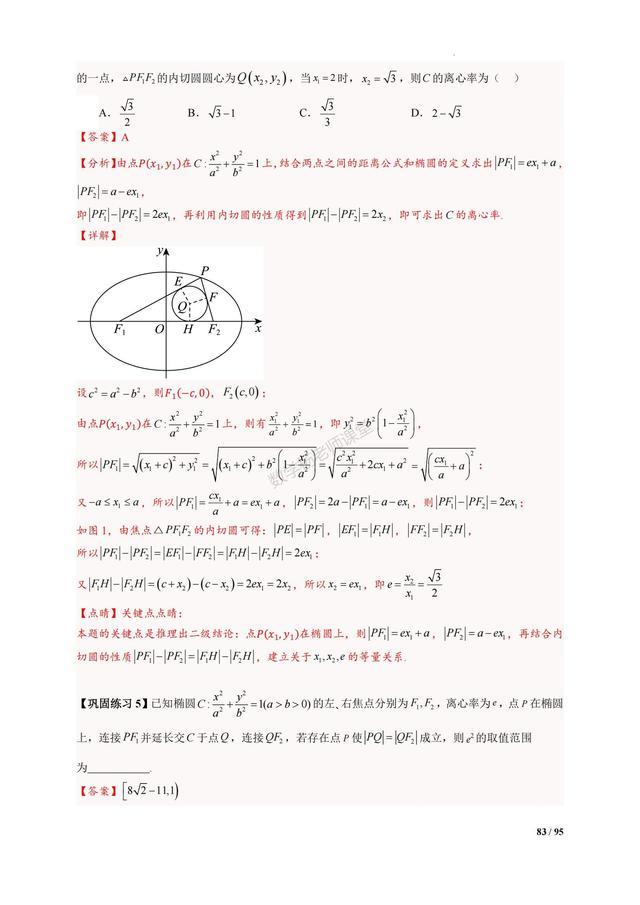 的一点，△PF₁F₂的内切圆圆心为Q(x₂, y₂)，当x₁=2时，x₂=√3，则C的离心率为（ ）
A．√3/2 B．√3−1 C．√3/3 D．2−√3
【答案】A
【分析】由点P(x₁,y₁)在C:x²/a²+y²/b²=1上，结合两点之间的距离公式和椭圆的定义求出|PF₁|=ex₁+a，
|PF₂|=a−ex₁，
即|PF₁|−|PF₂|=2ex₁，再利用内切圆的性质得到|PF₁|−|PF₂|=2x₂，即可求出C的离心率.
【详解】
y
P
E
F
Q
F₁ O H F₂ x
设c²=a²−b²，则F₁(−c,0)，F₂(c,0)；
由点P(x₁,y₁)在C:x²/a²+y²/b²=1上，则有x₁²/a²+y₁²/b²=1，即y₁²=b²(1−x₁²/a²)，
所以|PF₁|=√((x₁+c)²+y₁²)=√((x₁+c)²+b²(1−x₁²/a²))=√(c²x₁²/a²+2cx₁+a²)=√((cx₁/a+a)²)；
又−a≤x₁≤a，所以|PF₁|=cx₁/a+a=ex₁+a，|PF₂|=2a−|PF₁|=a−ex₁，则|PF₁|−|PF₂|=2ex₁；
如图1，由焦点△PF₁F₂的内切圆可得：|PE|=|PF|，|EF₁|=|F₁H|，|FF₂|=|F₂H|，
所以|PF₁|−|PF₂|=|EF₁|−|FF₂|=|F₁H|−|F₂H|=2ex₁；
又|F₁H|−|F₂H|=(c+x₂)−(c−x₂)=2ex₁=2x₂，所以x₂=ex₁，即e=x₂/x₁=√3/2
【点睛】关键点点睛：
本题的关键点是推理出二级结论：点P(x₁,y₁)在椭圆上，则|PF₁|=ex₁+a，|PF₂|=a−ex₁，再结合内
切圆的性质|PF₁|−|PF₂|=|F₁H|−|F₂H|，建立关于x₁,x₂,e的等量关系.
【巩固练习5】已知椭圆C:x²/a²+y²/b²=1(a>b>0)的左、右焦点分别为F₁,F₂，离心率为e，点P在椭圆
上，连接PF₁并延长交C于点Q，连接QF₂，若存在点P使|PQ|=|QF₂|成立，则e²的取值范围
为___________.
【答案】[8√2−11,1)
83 / 95